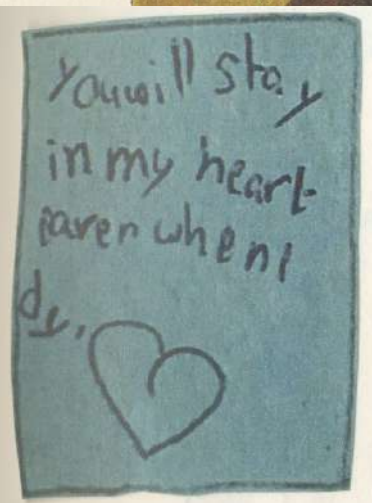 you will stay
in my heart
eaven when I
dy.